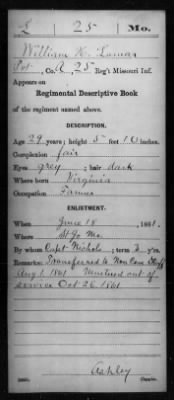 L 25 Mo.
William K. Lamar
Pvt, Co. A, 25 Reg't Missouri Inf.
Appears on
Regimental Descriptive Book
of the regiment named above.
DESCRIPTION.
Age 29 years; height 5 feet 10 inches.
Complexion fair
Eyes grey ; hair dark
Where born Virginia
Occupation Farmer
ENLISTMENT.
When June 18, 1861.
Where St Jo Mo.
By whom Capt Nichols ; term 3 y'rs.
Remarks: Transferred to Non Com Staff
Aug 1 1861 Mustered out of
service Oct 26 1861
Ashley
Copyist.